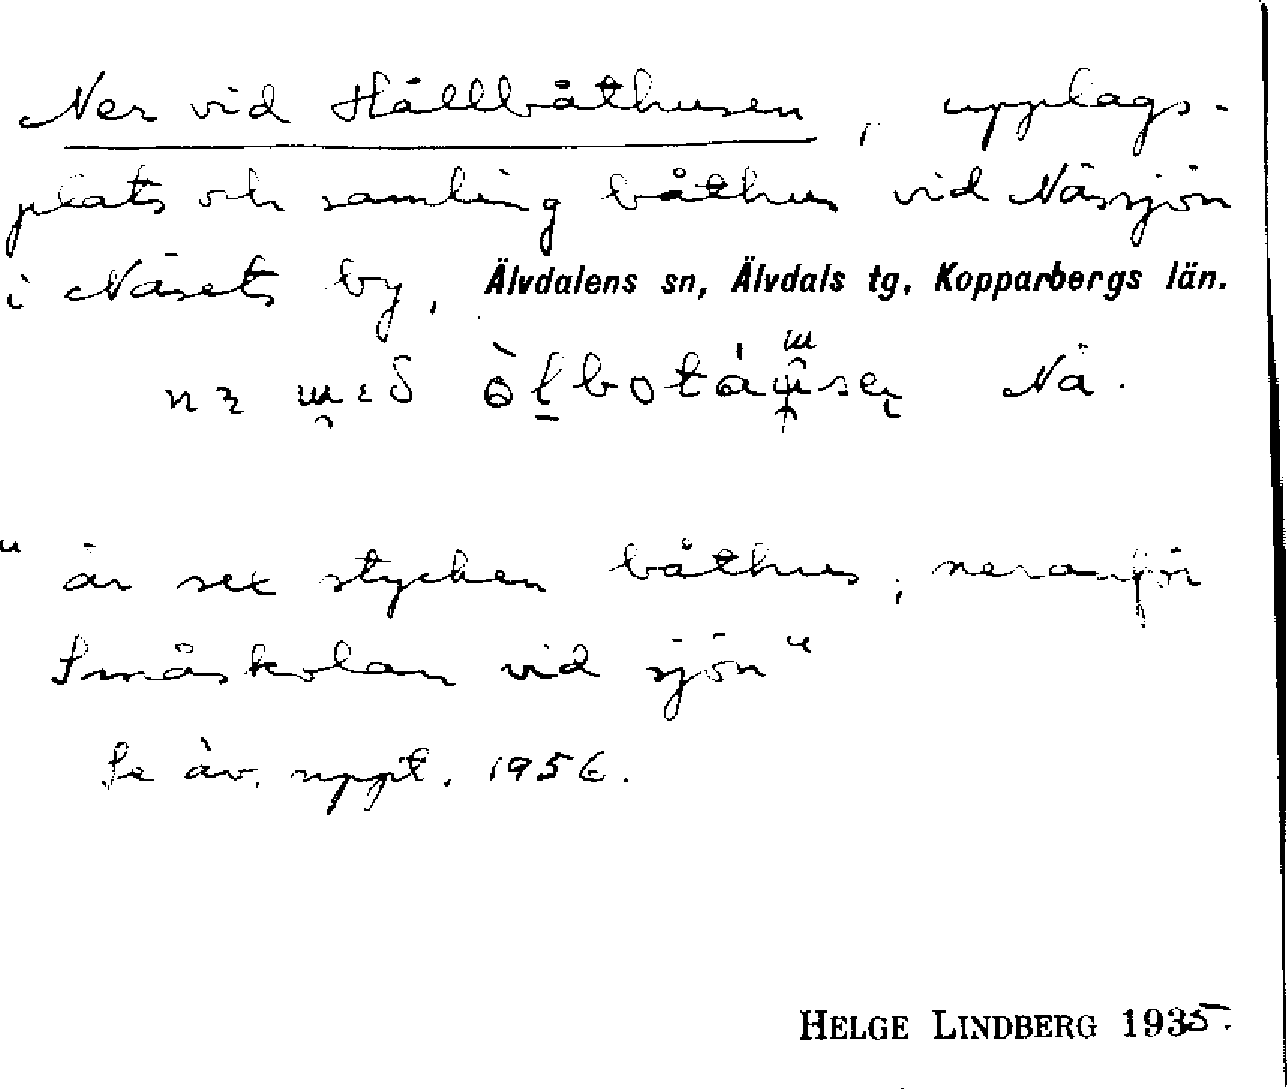 Ner vid Hållbåthusen, upplags-
plats och samling båthus vid Nässjön
i Näsets by, Älvdalens sn, Älvdals tg, Kopparbergs län.
Nä.
"är sex stycken båthus, neranför
Småskolan vid sjön"
Se äv. uppt. 1956.
HELGE LINDBERG 1935.